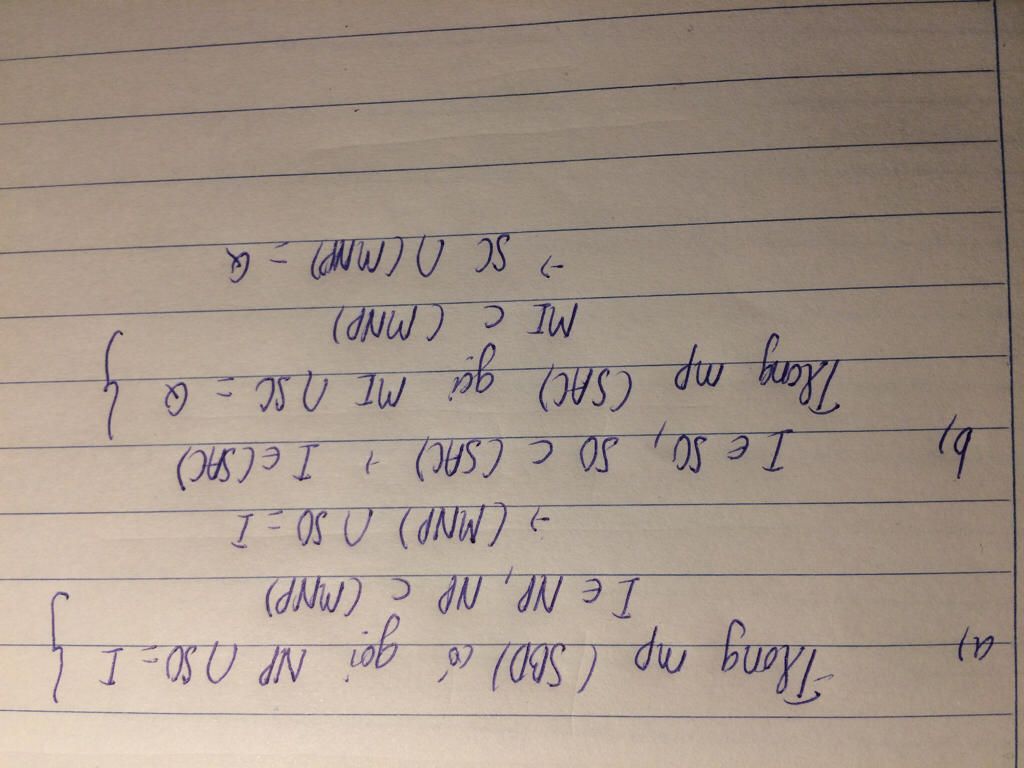 a) Trong mp (SBD) có gọi NP ∩ SO = I }
I ∈ NP, NP ⊂ (MNP)
→ (MNP) ∩ SO = I
b) I ∈ SO, SO ⊂ (SAC) → I ∈ (SAC)
Trong mp (SAC) gọi MI ∩ SC = Q }
MI ⊂ (MNP)
→ SC ∩ (MNP) = Q